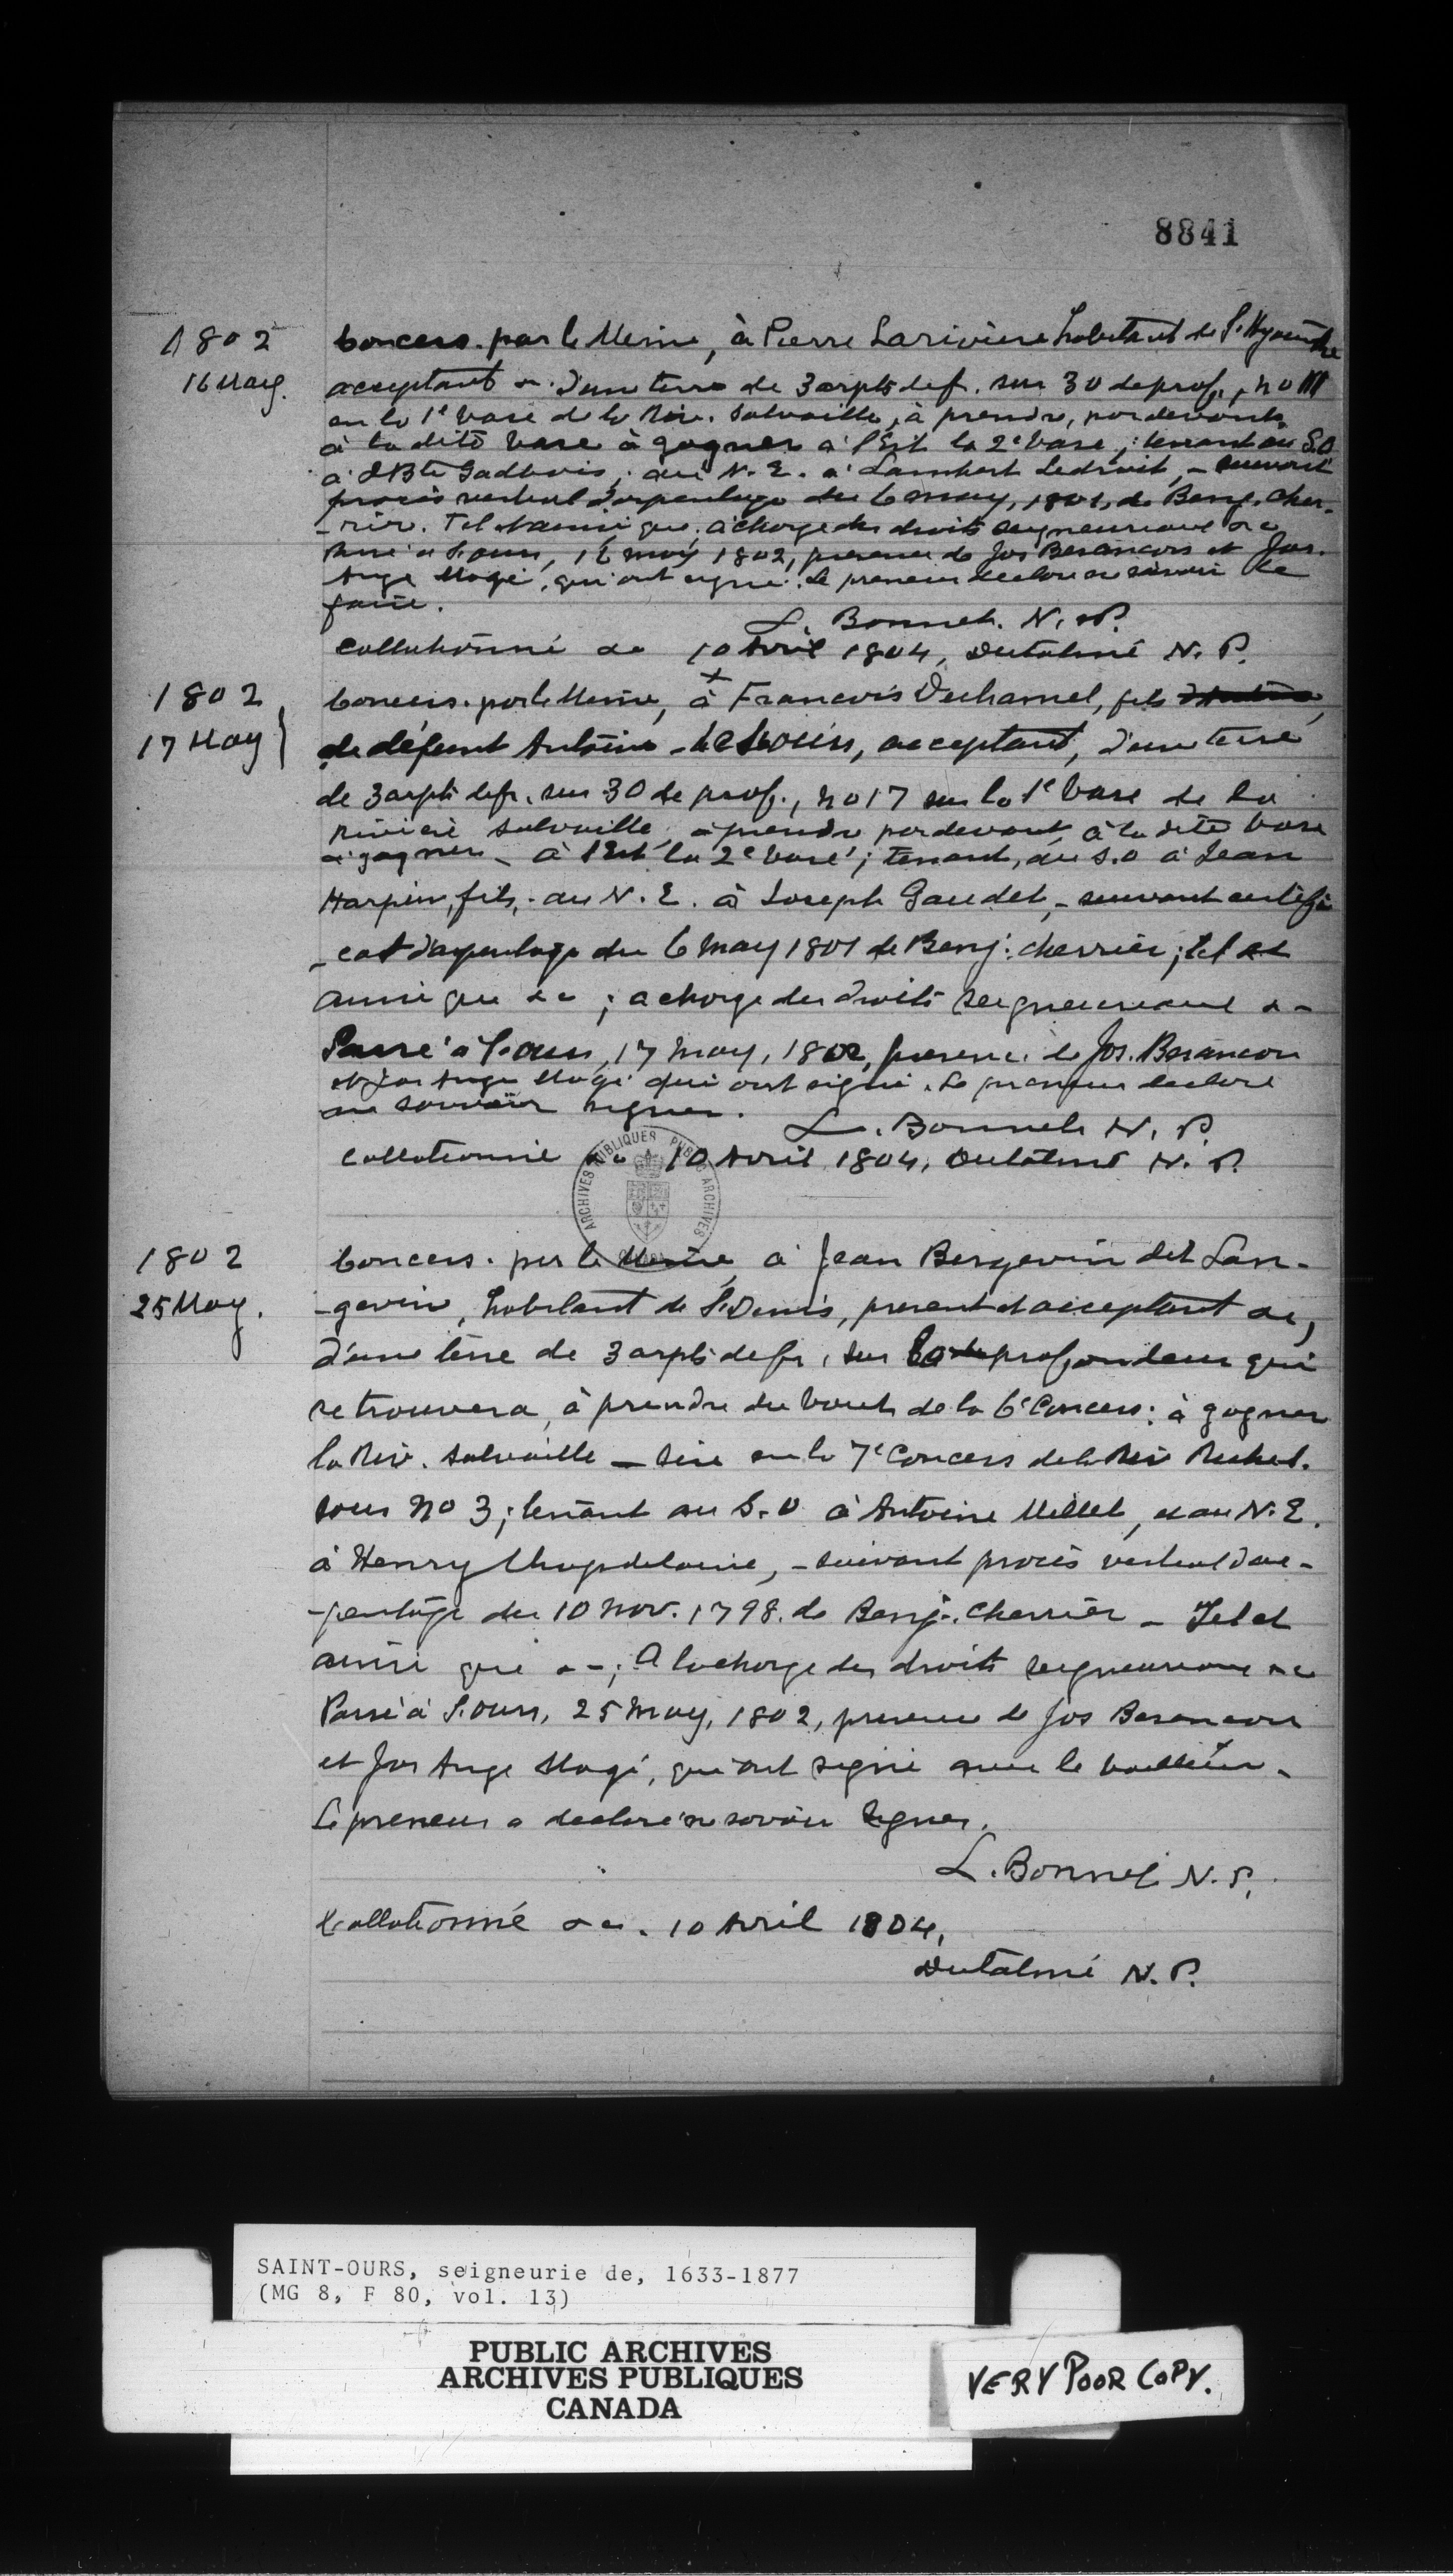 8841
1802
16 May.
Concess. par le Meme, à Pierre Larivière habitant de St Hyacinthe
acceptant &. d'une terre de 3 arpts de f. sur 30 de prof.,
en la 1e base de la Riv. Salvaille, à prendre, par devant,
à la dite base à gagner à l'Est la 2e base; tenant au S.O
à JBte Gadbois; au N.E. à Lambert Ledroit, - suivant
procès verbal d'arpentage du 6 may, 1801, de Benj. Cher-
-rier. Tel et ainsi que, à charge des droits seigneuriaux &c
Passé à St ours, 16 may 1802, presence de Jos Besancon et Jos.
Ange Magé, qui ont signé. Le preneur declare ne savoir le
faire.
L. Bonnet. N. P.
Collationné &c 10 Avril 1804, Dutalmé N. P.
1802
17 May
Concess. par le Meme, à Francois Duhamel, fils
de défunt Antoine - de St Ours, acceptant, d'une terre
de 3 arpts de fr. sur 30 de prof., no 17 sur la 1e base de la
Rivière Salvaille, à prendre par devant à la dite base
à gagner - à l'Est la 2e base; tenant, au S.O à Jean
Harpin, fils, - au N.E. à Joseph Gaudet, - suivant certifi
-cat d'arpentage du 6 may 1801 de Benj. Cherrier; tel et
ainsi que &c; a charge des droits seigneuriaux &c
Passé à St ours, 17 may, 1802, presence de Jos. Besancon
et Jos Ange Magé qui ont signé. Le preneur declare
ne savoir signer.
L. Bonnet N. P.
Collationné &c 10 Avril 1804, Dutalmé N. P.
ARCHIVES PUBLIQUES PUBLIC ARCHIVES
1802
25 May.
Concess. par le Meme, à Jean Bergevin dit Lan-
-gevin, habitant de St Denis, present et acceptant &c,
d'une terre de 3 arpts de fr, sur la profondeur qui
se trouvera, à prendre du bout de la 6e Concess: à gagner
la Riv. Salvaille - sise en la 7e Concess de la Riv Richel.
sous no 3; tenant au S.O à Antoine Millet, et au N.E.
à Henry Chapdelaine, - suivant procès verbal d'ar-
-pentage du 10 nov. 1798. de Benj. Cherrier - Tel et
ainsi que &c; A la charge des droits seigneuriaux &c
Passé à St. Ours, 25 May, 1802, presence de Jos Besancon
et Jos Ange Magé, qui ont signé avec le bailleur.
Le preneur a declaré ne savoir signer.
L. Bonnet N. P.
Collationné &c. 10 Avril 1804,
Dutalmé N. P.
SAINT-OURS, seigneurie de, 1633-1877
(MG 8, F 80, vol. 13)
PUBLIC ARCHIVES
ARCHIVES PUBLIQUES
CANADA
VERY POOR COPY.